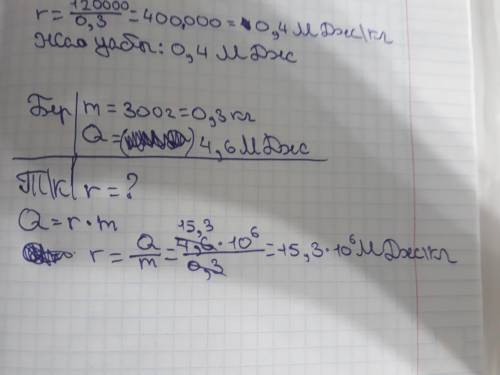 r = 120000/0,3 = 400,000 = 0,4 МДж\кг
Жауабы: 0,4 МДж
Бер m = 300г = 0,3 кг
Q = 4,6 МДж
Т\к r = ?
Q = r · m
r = Q/m = 15,3 4,6 · 10⁶/0,3 = 15,3 · 10⁶ МДж\кг